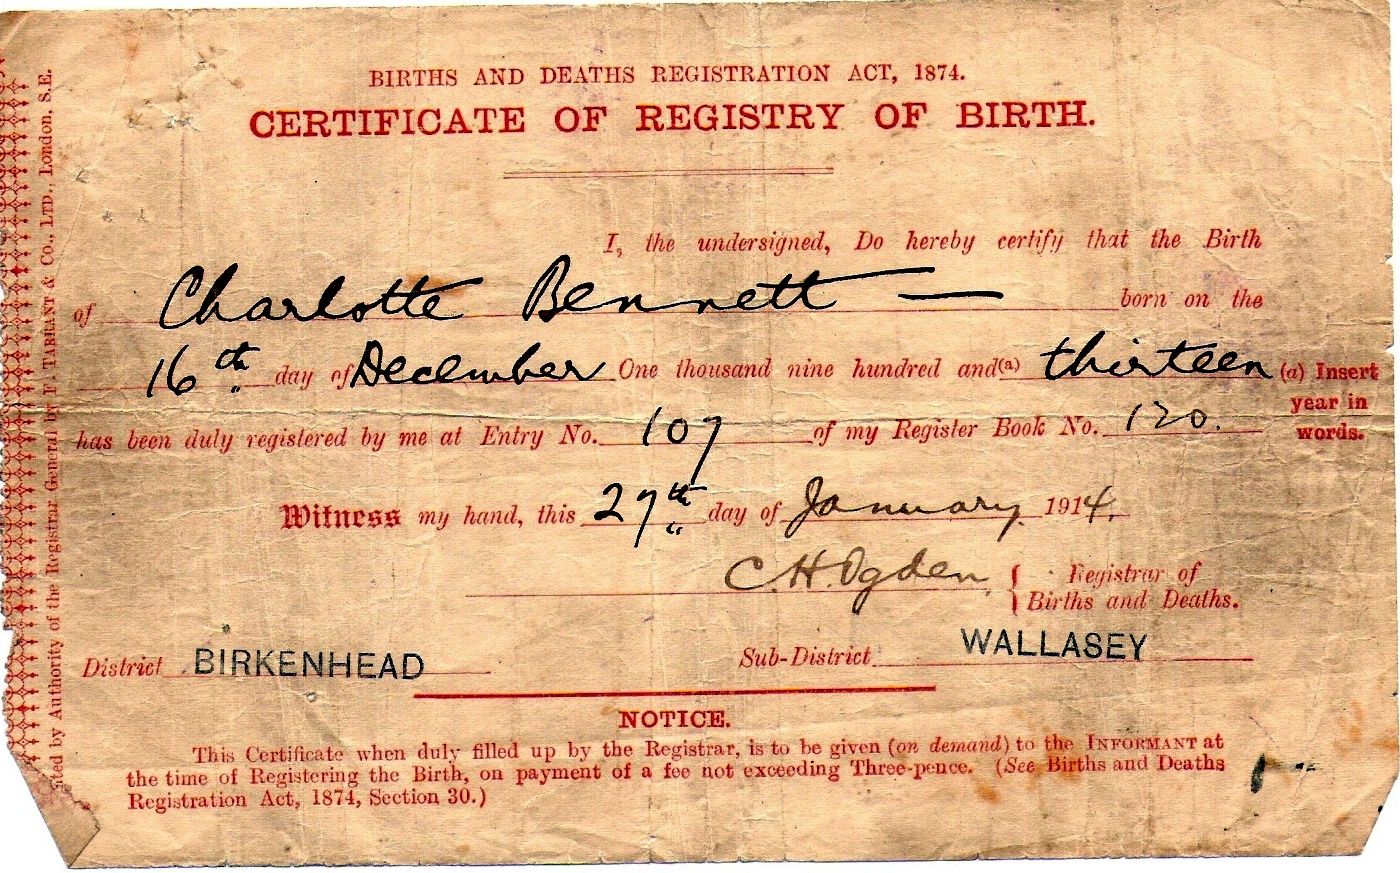 BIRTHS AND DEATHS REGISTRATION ACT, 1874.
CERTIFICATE OF REGISTRY OF BIRTH.
I, the undersigned, Do hereby certify that the Birth
of Charlotte Bennett — born on the
16th day of December One thousand nine hundred and (a) thirteen (a) Insert
year in
has been duly registered by me at Entry No. 107 of my Register Book No. 120. words.
Witness my hand, this 27th day of January 1914.
C. H. Ogden { Registrar of
Births and Deaths.
District BIRKENHEAD Sub-District WALLASEY
NOTICE.
This Certificate when duly filled up by the Registrar, is to be given (on demand) to the INFORMANT at
the time of Registering the Birth, on payment of a fee not exceeding Three-pence. (See Births and Deaths
Registration Act, 1874, Section 30.)
by Authority of the Registrar General by TARRANT & CO., LTD., London, S.E.